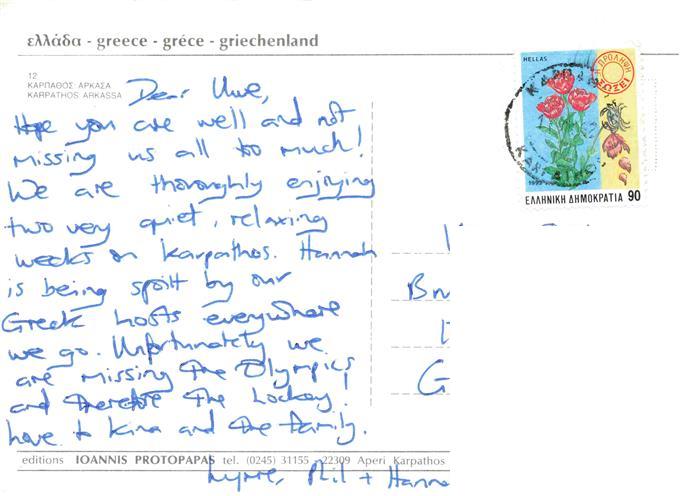 ελλάδα - greece - gréce - griechenland
12
ΚΑΡΠΑΘΟΣ: ΑΡΚΑΣΑ
KARPATHOS: ARKASSA
HELLAS
Η ΠΡΟΛΗΨΗ ΣΩΖΕΙ
1993
ΕΛΛΗΝΙΚΗ ΔΗΜΟΚΡΑΤΙΑ 90
Dear Uwe,
Hope you are well and not
missing us all too much!
We are thoroughly enjoying
two very quiet, relaxing
weeks on Karpathos. Hannah
is being spoilt by our
Greek hosts everywhere
we go. Unfortunately we
are missing the Olympics
and therefore the hockey!
Love to Kina and the family.
Lynne, Phil + Hanna
Br
G
editions IOANNIS PROTOPAPAS tel. (0245) 31155 - 22309 Aperi Karpathos